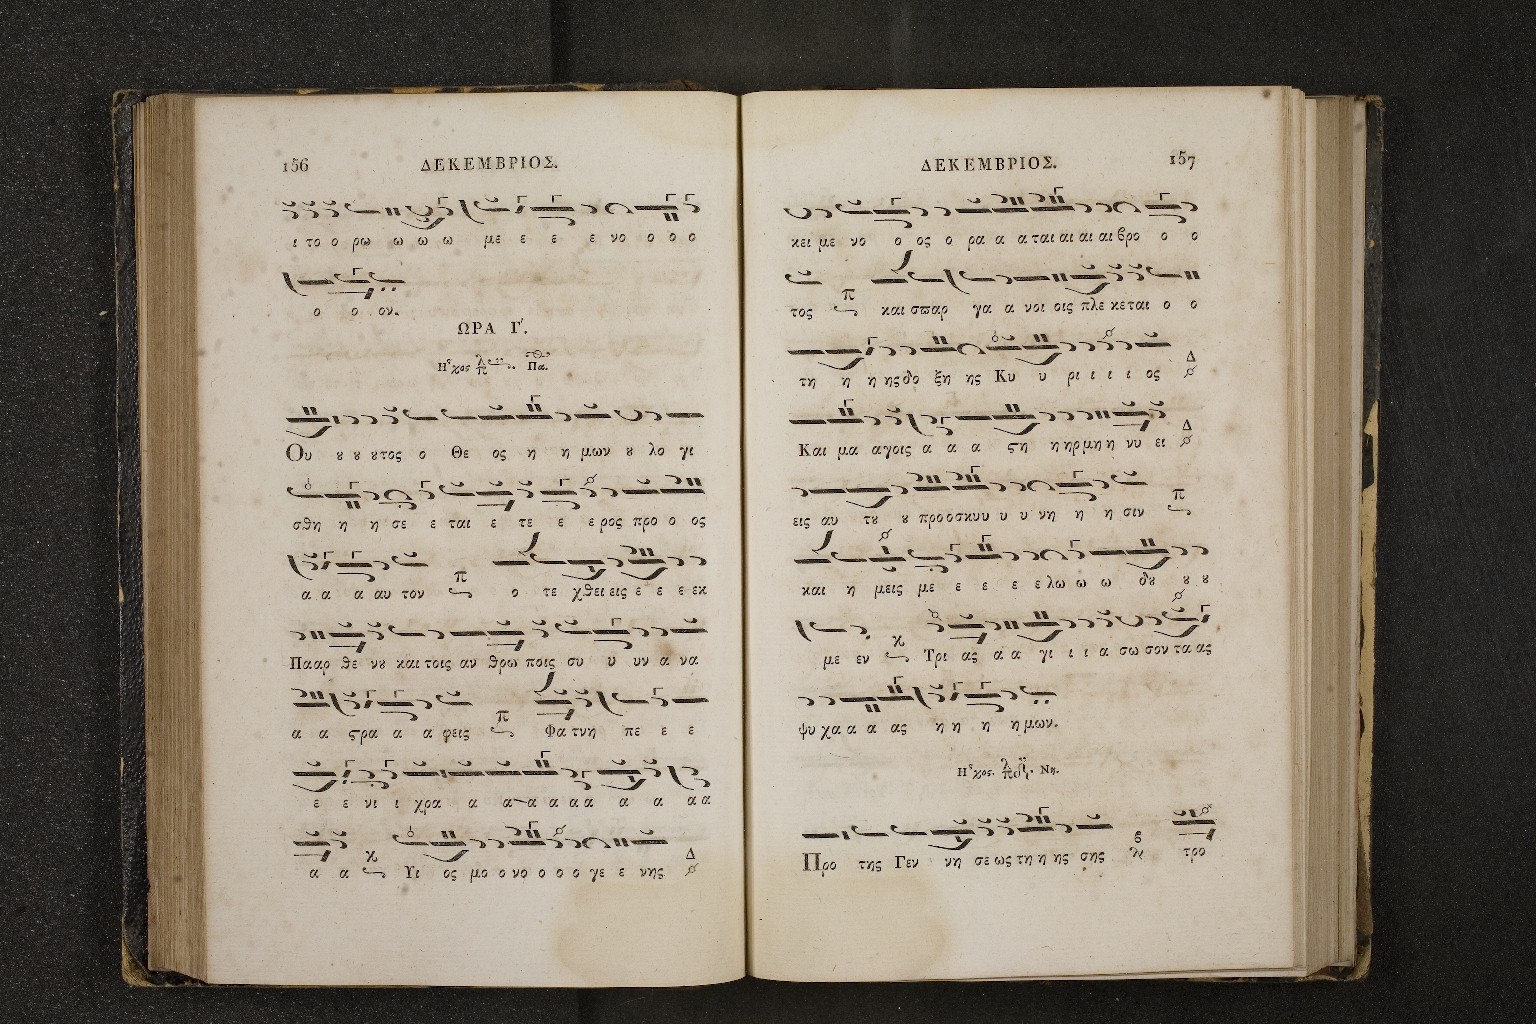 156
ΔΕΚΕΜΒΡΙΟΣ.
ι το ο ρω ω ω ω με ε ε ε νο ο ο ο
ο ο ον.
ΩΡΑ Γ΄.
Ηχος Πα.
Ου ȣ ȣ ȣτος ο Θε ος η η μων ȣ λο γι
σθη η η σε ε ται ε τε ε ε ρος προ ο ος
α α α αυ τον ο τε χθει εις ε ε ε εκ
Πααρ θε νȣ και τοις αν θρω ποις συ υ υν α να
α α ϛρα α α φεις Φα τνη πε ε ε
ε ε νι ι χρα α α α α α α α α α α
α α Υι ος μο ο νο ο ο ο γε ε νης Δ
157
ΔΕΚΕΜΒΡΙΟΣ.
κει με νο ο ος ο ρα α α ται αι αι αι βρο ο ο
τος και σπαρ γα α νοι οις πλε κεται ο ο
τη η η ης δο ξη ης Κυ υ ρι ι ι ι ος Δ
Και μα αγοις α α α ϛη η ηρμη η νυ ει Δ
εις αυ τȣ ȣ προ οσκυυ υ υ νη η η σιν
και η μεις με ε ε ε ε λω ω ω δȣ ȣ ȣ
με εν Τρι ας α α γι ι ι α σω σον τα ας
ψυ χα α α ας η η η η μων.
Ηχος. Νη.
Προ της Γεν νη σε ως τη η ης σης τρο